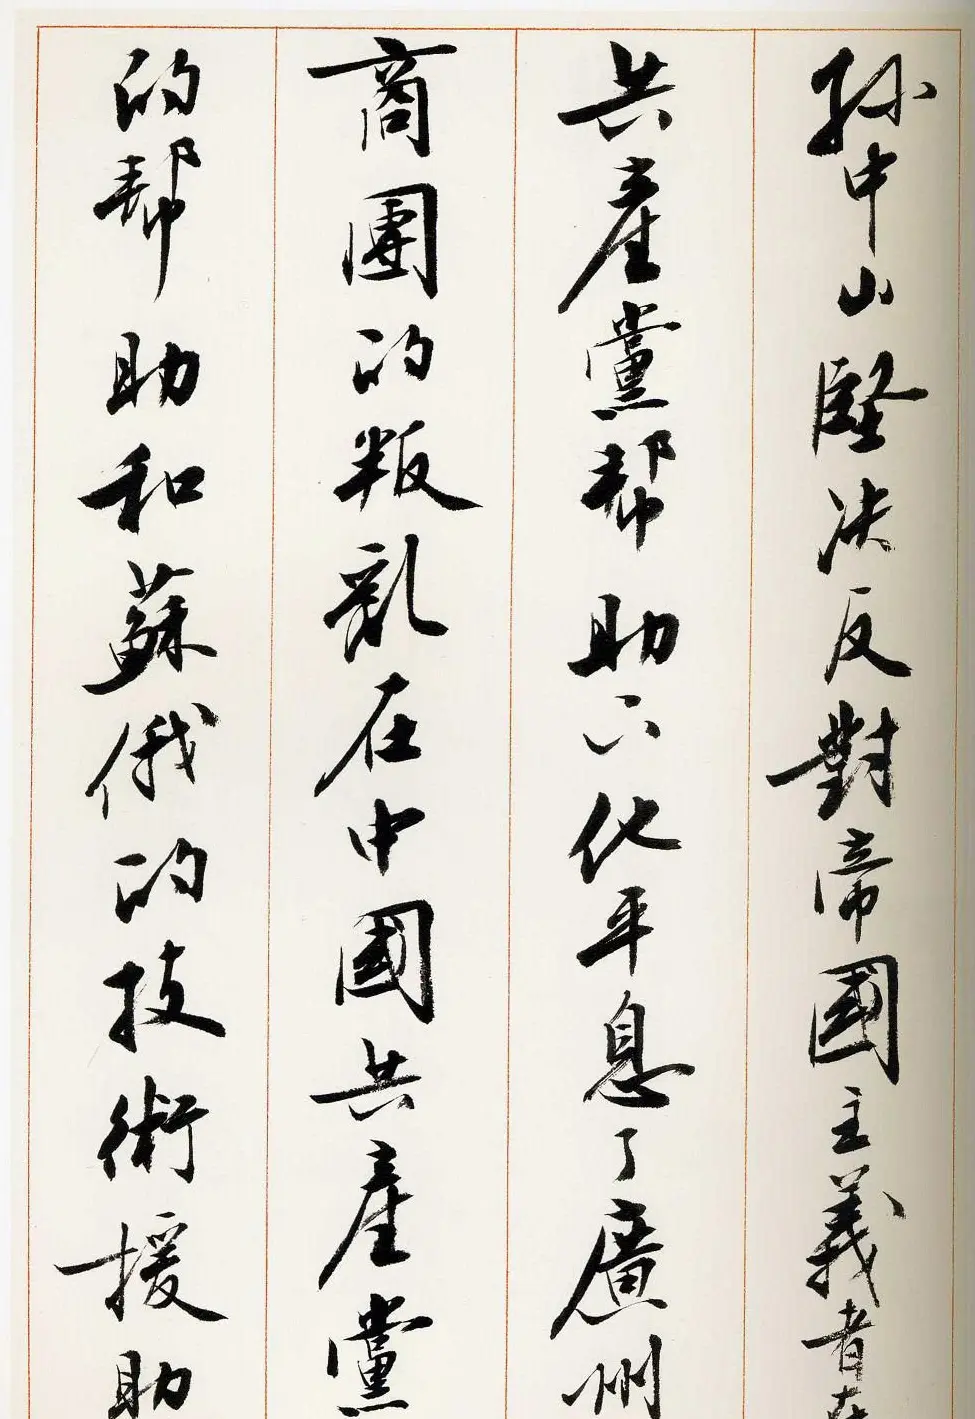 孙中山堅决反對帝國主義者在
共產黨幇助下他平息了廣州
商團的叛亂在中國共產黨
的幇助和蘇俄的技術援助